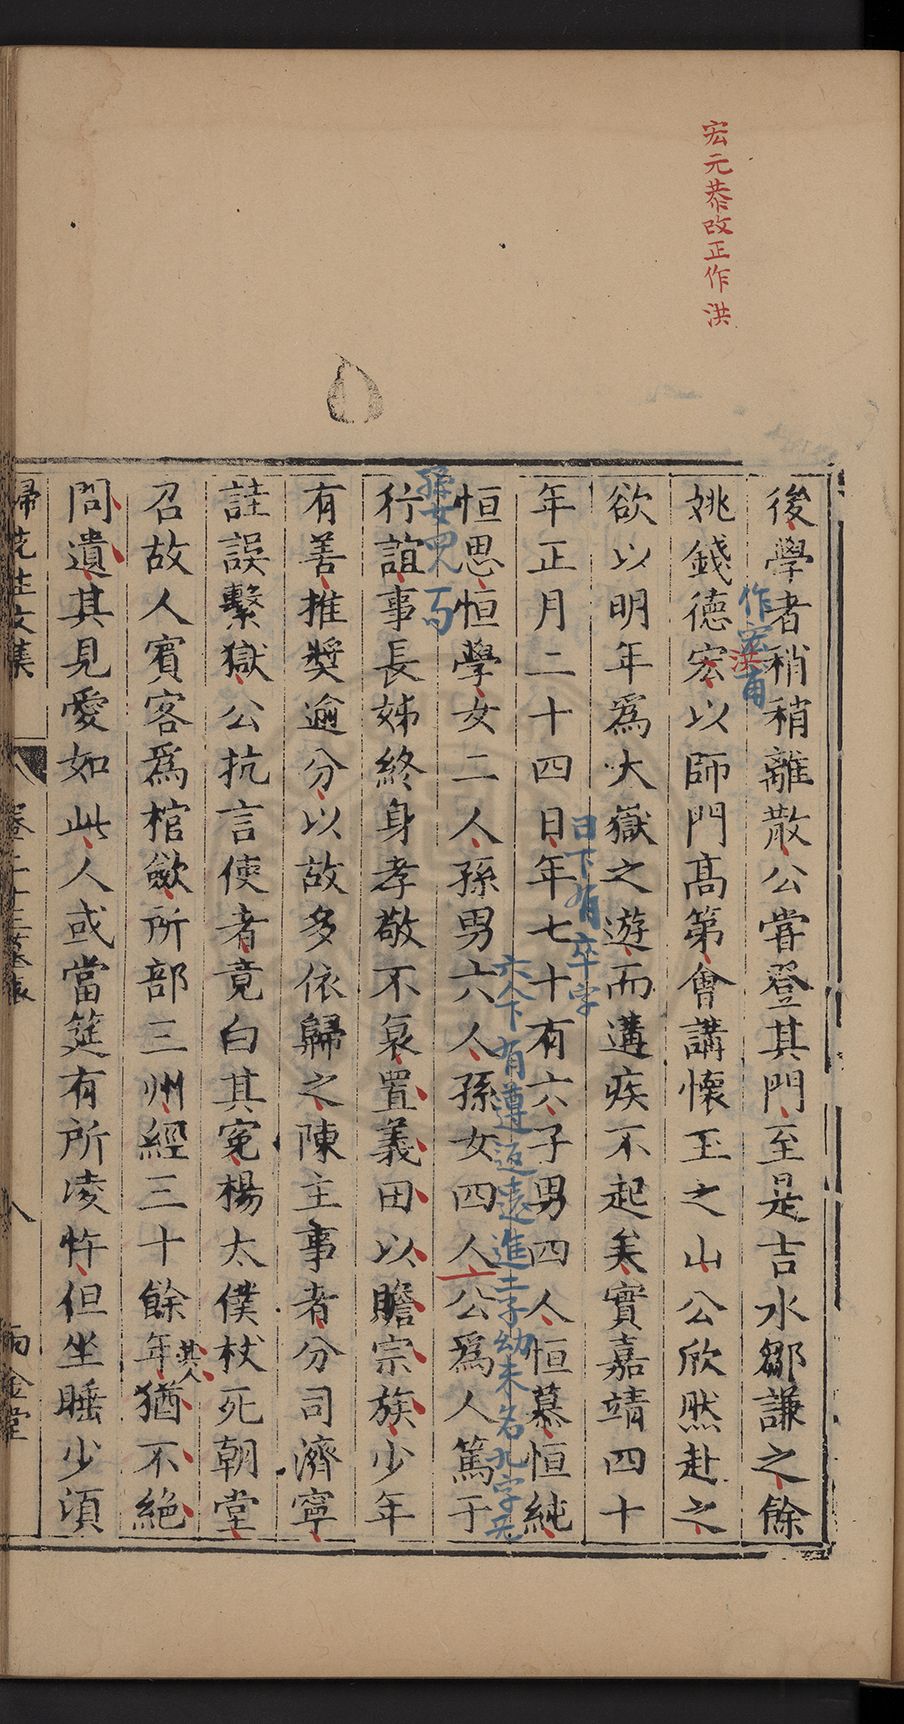 宏元恭改正作洪
後學者稍稍離散公嘗登其門至是吉水鄒謙之餘
姚錢德宏以師門高第會講懷玉之山公欣然赴之
作宏
洪
欲以明年爲大嶽之遊而遘疾不起矣實嘉靖四十
年正月二十四日年七十有六子男四人恒慕恒純
日下有卒字
恒思恒學女二人孫男六人孫女四人公爲人篤于
六人下有遵迥遠進二子幼未名九字
行誼事長姊終身孝敬不衰置義田以贍宗族少年
孫女四人
有善推奬逾分以故多依歸之陳主事者分司濟寧
詿誤繫獄公抗言使者竟白其寃楊太僕杖死朝堂
召故人賓客爲棺斂所部三州經三十餘年猶不絶
其人
問遺其見愛如此人或當筵有所凌忤但坐睡少湏
歸先生文集
卷二十三墓表
八
雨金堂